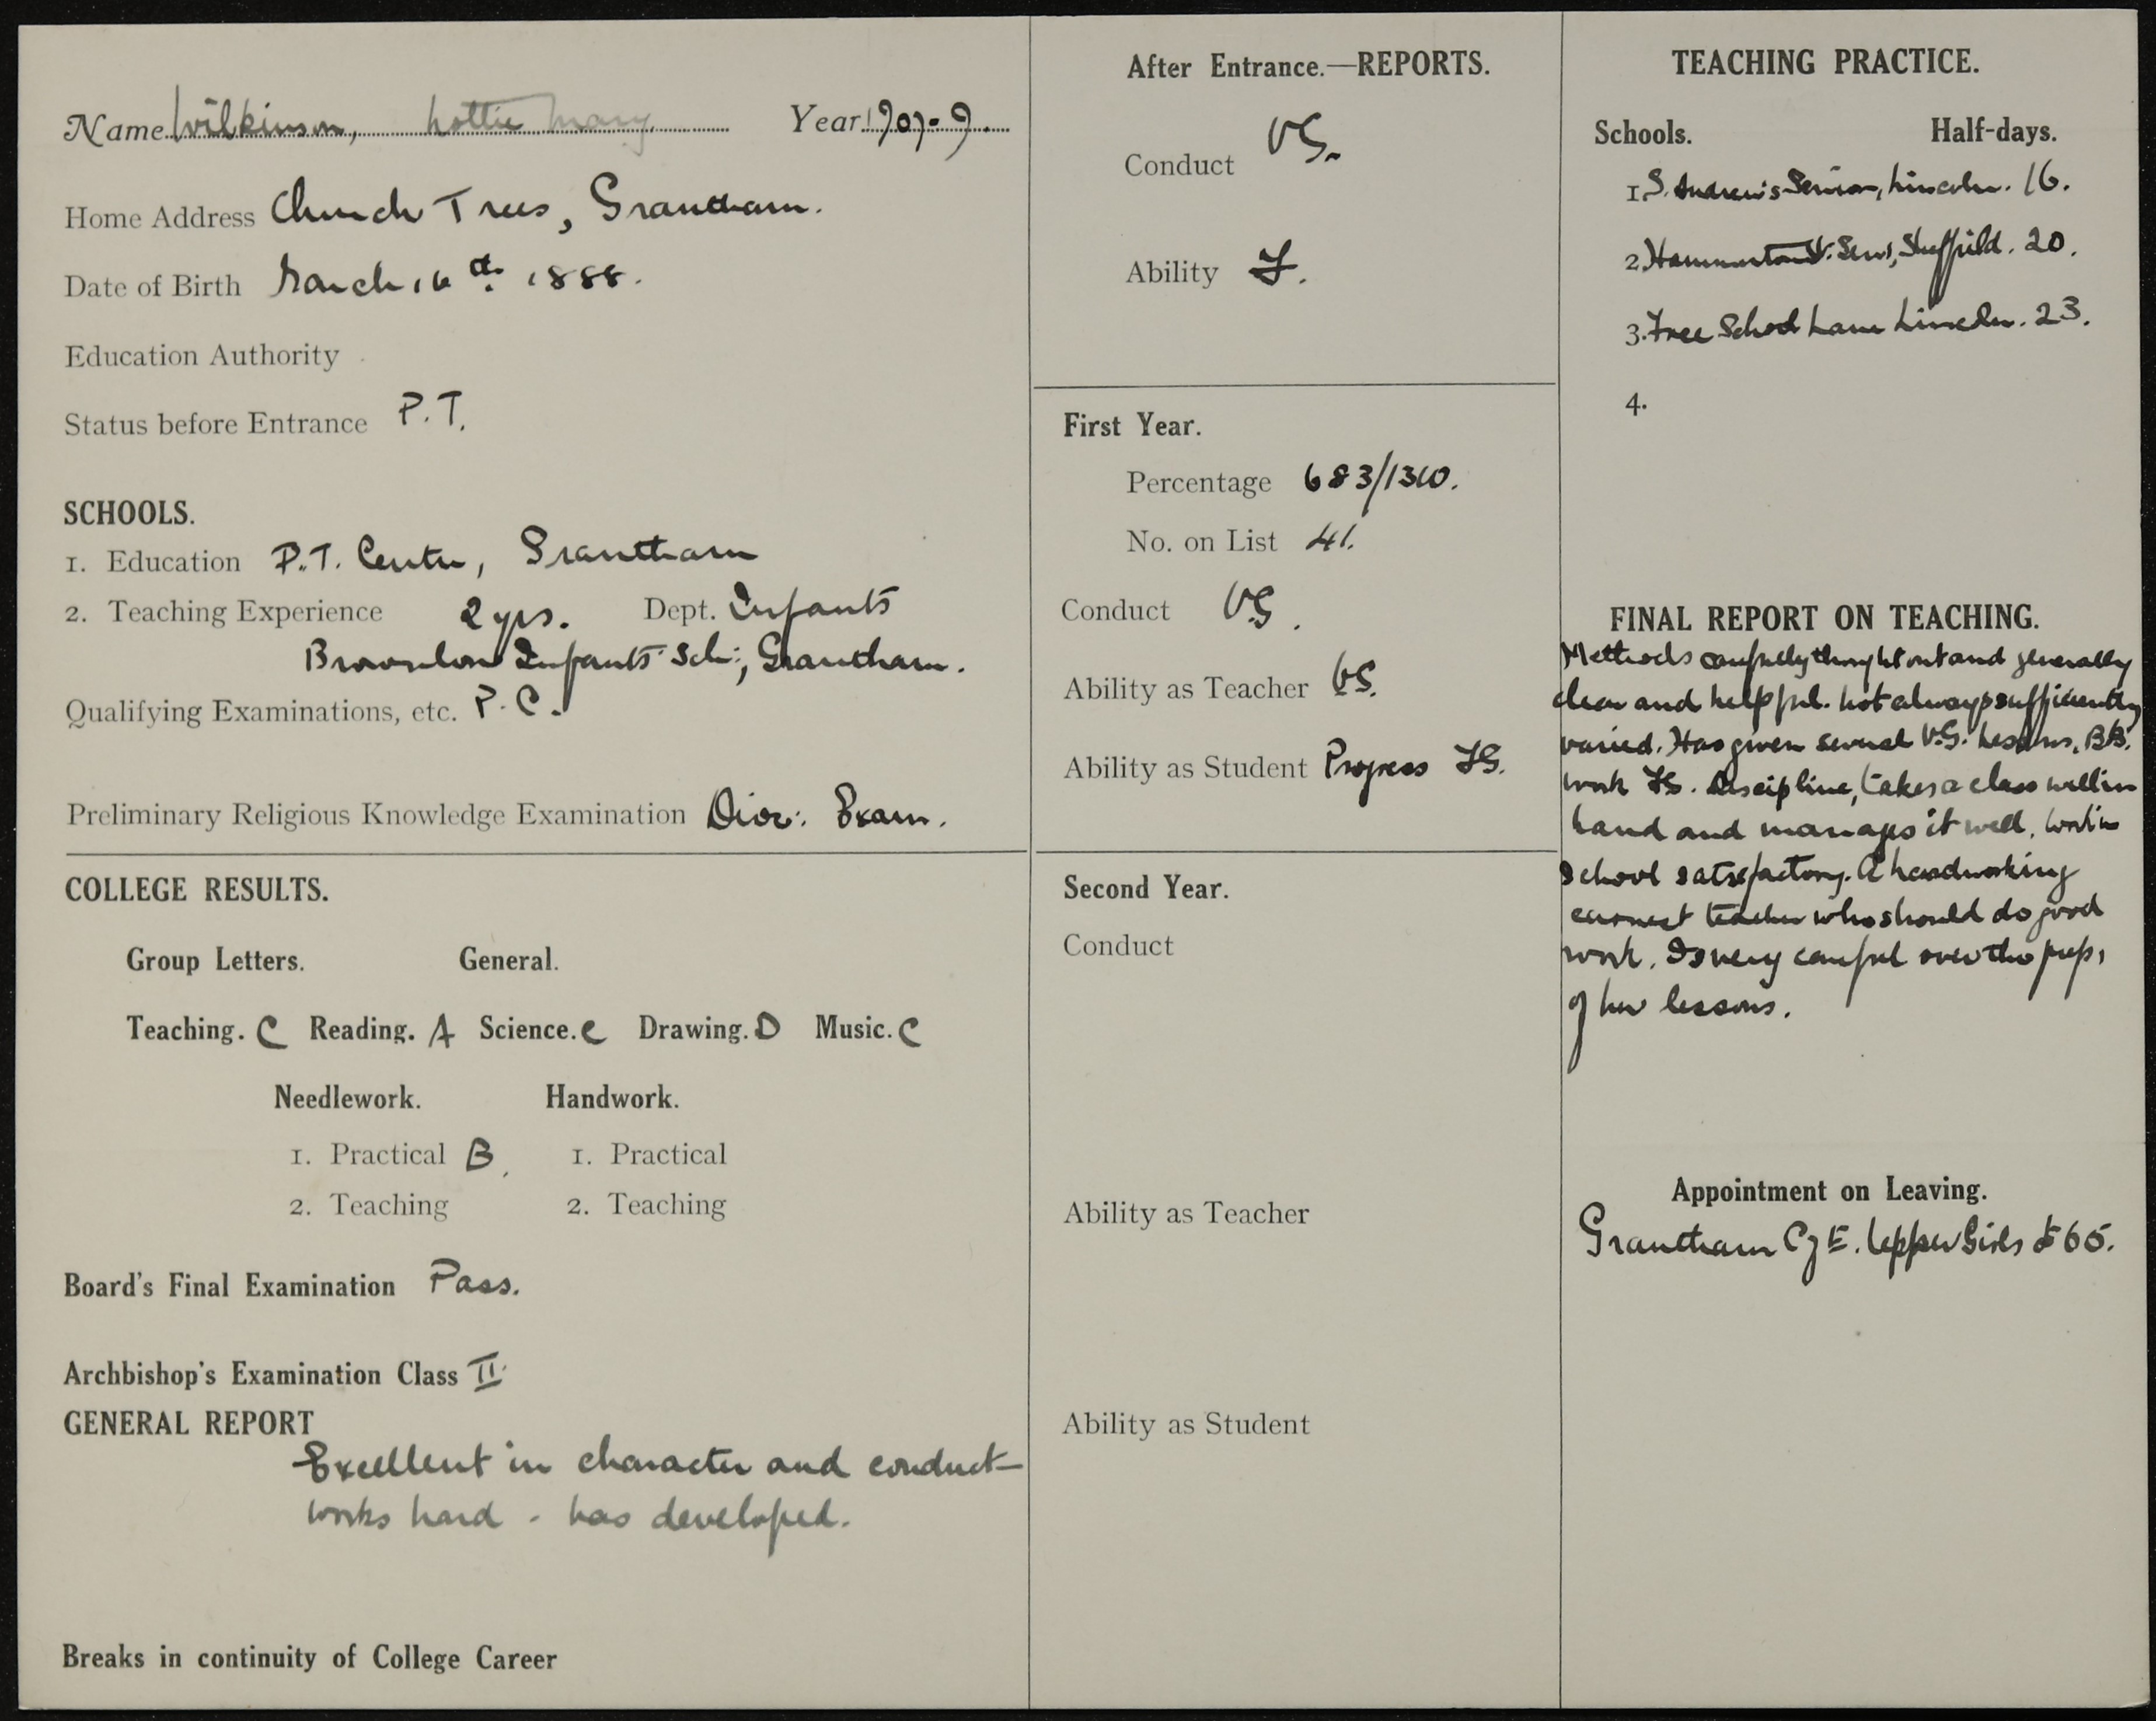 Name Wilkinson, Lottie Mary Year 1907-9.
Home Address Church Trees, Grantham.
Date of Birth March 16th 1888.
Education Authority
Status before Entrance P.T.
SCHOOLS.
1. Education P.T. Centre, Grantham
2. Teaching Experience 2 yrs. Dept. Infants
Brownlow Infants' Sch:, Grantham.
Qualifying Examinations, etc. P.C.
Preliminary Religious Knowledge Examination Dioc: Exam.
COLLEGE RESULTS.
Group Letters. General.
Teaching. C Reading. A Science. C Drawing. D Music. C
Needlework. Handwork.
1. Practical B. 1. Practical
2. Teaching 2. Teaching
Board's Final Examination Pass.
Archbishop's Examination Class II
GENERAL REPORT
Excellent in character and conduct -
works hard - has developed.
Breaks in continuity of College Career
After Entrance.—REPORTS.
Conduct VG.
Ability F.
First Year.
Percentage 683/1310.
No. on List 41.
Conduct VG.
Ability as Teacher VG.
Ability as Student Progress FG.
Second Year.
Conduct
Ability as Teacher
Ability as Student
TEACHING PRACTICE.
Schools. Half-days.
1. S. Andrew's Senior, Lincoln. 16.
2. Hammerton St. Senr, Sheffield. 20.
3. Free School Lane Lincoln. 23.
4.
FINAL REPORT ON TEACHING.
Methods carefully thought out and generally
clear and helpful. Not always sufficiently
varied. Has given several V.G. lessons, BB.
work FG. Discipline, takes a class well in
hand and manages it well. Work in
School satisfactory. A hardworking
earnest teacher who should do good
work. Is very careful over the prep,
of her lessons.
Appointment on Leaving.
Grantham C of E. Upper Girls £65.